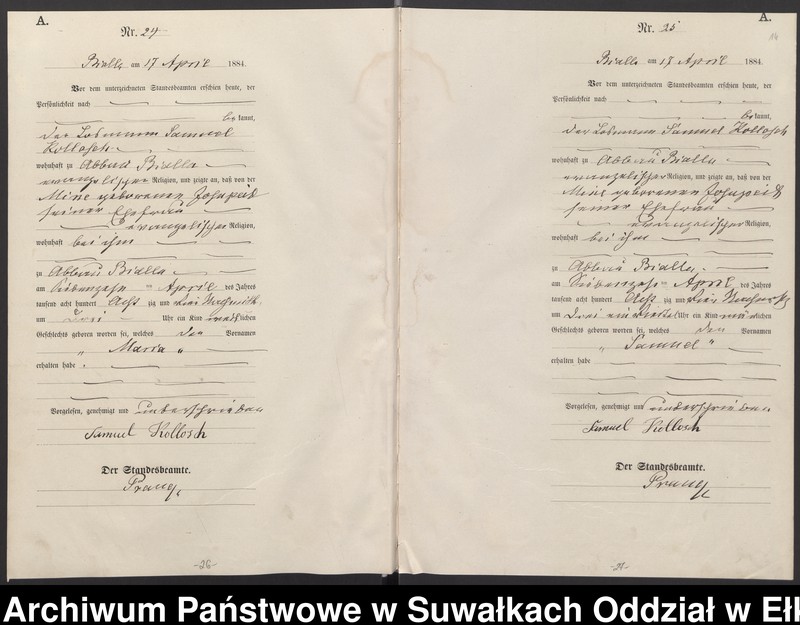 A.
Nr. 24
Bialla am 17 April 1884.
Vor dem unterzeichneten Standesbeamten erschien heute, der
Persönlichkeit nach
bekannt,
der Losmann Samuel
Kollosch
wohnhaft zu Abbau Bialla
evangelischer Religion, und zeigte an, daß von der
Mine geborenen
seiner Ehefrau
evangelischer Religion,
wohnhaft bei ihm
zu Abbau Bialla
am siebenzehn April des Jahres
tausend acht hundert Acht zig und
um drei Uhr ein Kind weiblichen
Geschlechts geboren worden sei, welches den Vornamen
„ Maria „
erhalten habe.
Vorgelesen, genehmigt und unterschrieben
Samuel Kollosch
Der Standesbeamte.
Prang
-26-
A.
Nr. 25
Bialla am 17 April 1884.
Vor dem unterzeichneten Standesbeamten erschien heute, der
Persönlichkeit nach
bekannt,
der Losmann Samuel Kollosch
wohnhaft zu Abbau Bialla
evangelischer Religion, und zeigte an, daß von der
Mine geborenen
seiner Ehefrau
evangelischer Religion,
wohnhaft bei ihm
zu Abbau Bialla
am Siebenzehn April des Jahres
tausend acht hundert Acht zig und
um drei ein viertel Uhr ein Kind männlichen
Geschlechts geboren worden sei, welches den Vornamen
„ Samuel "
erhalten habe
Vorgelesen, genehmigt und unterschrieben
Samuel Kollosch
Der Standesbeamte.
Prang
Archiwum Państwowe w Suwałkach Oddział w Ełk